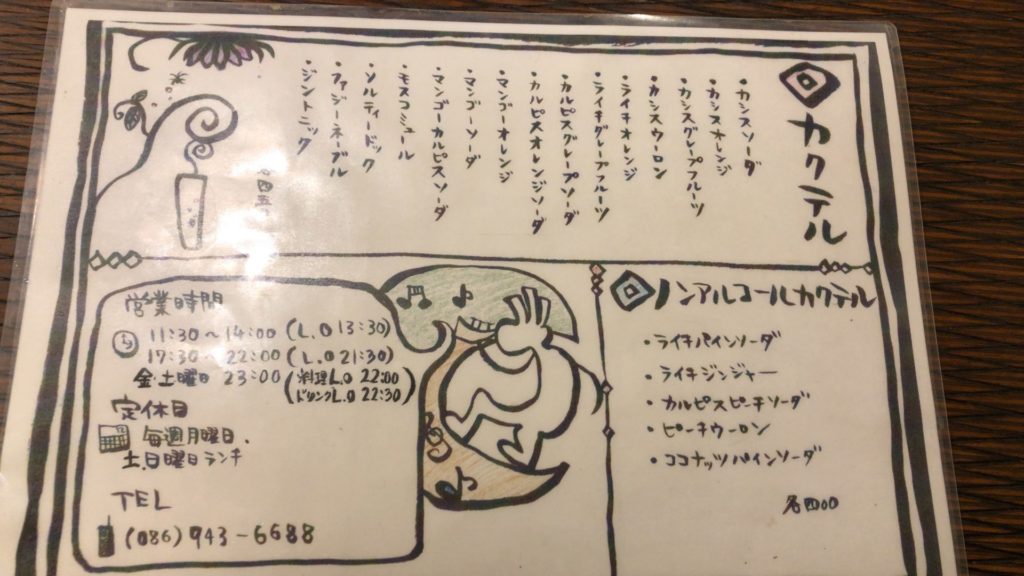 カクテル
・カシスソーダ
・カシスオレンジ
・カシスグレープフルーツ
・カシスウーロン
・ライチオレンジ
・ライチグレープフルーツ
・カルピスグレープソーダ
・カルピスオレンジソーダ
・マンゴーオレンジ
・マンゴーソーダ
・マンゴーカルピスソーダ
・モスコミュール
・ソルティードック
・ファジーネーブル
・ジントニック
ノンアルコールカクテル
・ライチパインソーダ
・ライチジンジャー
・カルピスピーチソーダ
・ピーチウーロン
・ココナッツパインソーダ
各四〇〇
営業時間
11:30〜14:00 (L.O 13:30)
17:30〜22:00 (L.O 21:30)
金・土曜日 23:00 (料理L.O 22:00
ドリンクL.O 22:30)
定休日
毎週月曜日.
土日曜日ランチ
TEL
(086) 943-6688